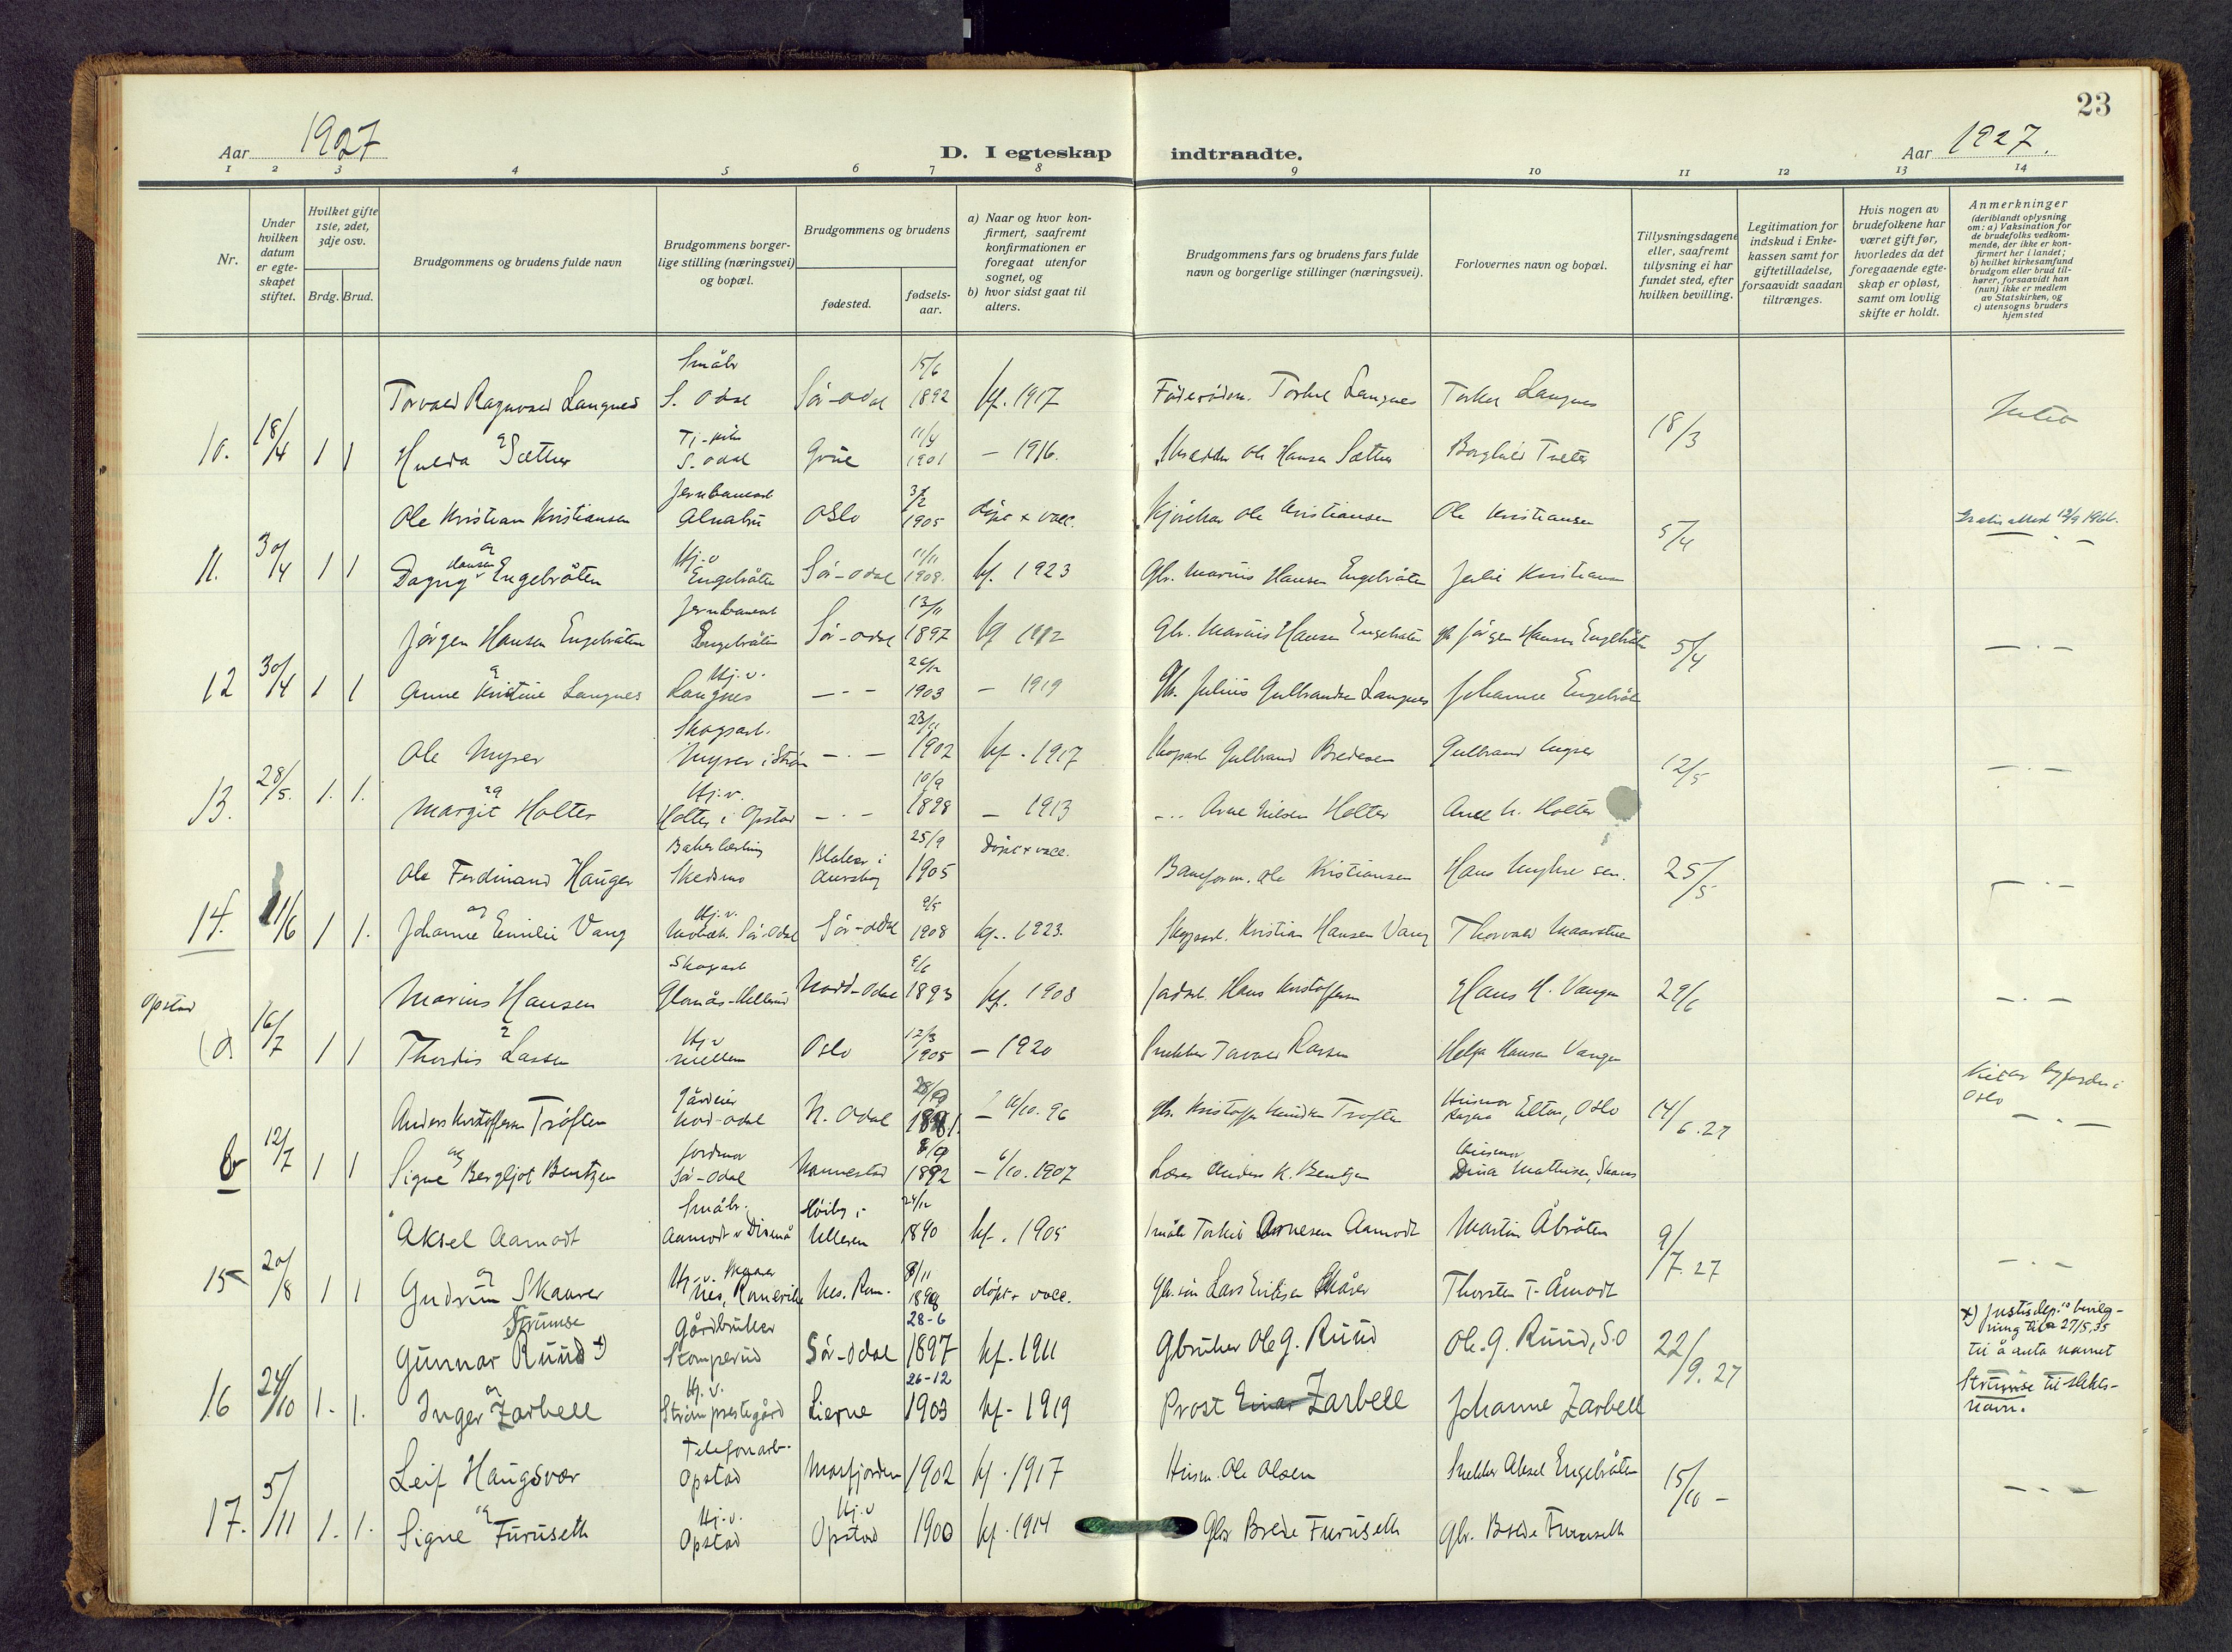 23
Aar 1927
D. I egteskap indtraadte.
Aar 1927.
1 2 3 4 5 6 7 8 9 10 11 12 13 14
Nr.
Under hvilken datum er egteskapet stiftet.
Hvilket gifte 1ste, 2det, 3dje osv.
Brdg. Brud.
Brudgommens og brudens fulde navn
Brudgommens borgerlige stilling (næringsvei) og bopæl.
Brudgommens og brudens
fødested.
fødselsaar.
a) Naar og hvor konfirmert, saafremt konfirmationen er foregaat utenfor sognet, og
b) hvor sidst gaat til alters.
Brudgommens fars og brudens fars fulde navn og borgerlige stillinger (næringsvei).
Forlovernes navn og bopæl.
Tillysningsdagene eller, saafremt tillysning ei har fundet sted, efter hvilken bevilling.
Legitimation for indskud i Enkekassen samt for giftetilladelse, forsaavidt saadan tiltrænges.
Hvis nogen av brudefolkene har været gift før, hvorledes da det foregaaende egteskap er opløst, samt om lovlig skifte er holdt.
Anmerkninger
(deriblandt oplysning om: a) Vaksination for de brudefolks vedkommende, der ikke er konfirmert her i landet;
b) hvilket kirkesamfund brudgom eller brud tilhører, forsaavidt han (hun) ikke er medlem av Statskirken, og
c) utensogns bruders hjemsted
Småbr 15/6
Torvald Ragnvald Langnes S. Odal Sör-Odal 1892 kf. 1917 Föderådsm. Torkel Langnes Torkel Langnes
10. 18/4 1 1 og 11/4 18/3
Hulda Sæther S. Odal Grue 1901 – 1916. Ole Hansen Sæther Borghild Tveter
Jernbanearb 3/2
Ole Kristian Kristiansen Alnabru Oslo 1905 döpt + vacc. Ole Kristiansen Ole Kristiansen
11. 30/4 1 1 og Hj.v 11/11 5/4
Dagny Hansen Engebråten Engebråten Sör-Odal 1908. kf. 1923 Gbr. Marius Hansen Engebråten Julie Kristiansen
Jernbanearb 13/11
Jörgen Hansen Engebråten Engebråten Sör-Odal 1897 kf 1912 Gbr. Marius Hansen Engebråten Jörgen Hansen Engebråten
12 30/4 1 1 og Hj.v. 26/12 5/4
Anne Kristine Langnes Langnes – · – 1903 – 1919 Gbr. Julius Gulbrandsen Langnes Johanne Engebråten
Skogsarb. 23/11
Ole Myrer Myrer i Ström – · – 1902 kf. 1917 Skogsarb Gulbrand Bredesen Gulbrand Myrer
13. 28/5. 1. 1. og Hj.v. 10/9 12/5
Margit Holter Holter i Opstad – · – 1898 – 1913 Arne Nilsen Holter Arne N. Holter
25/9 Döpt + vacc.
Ole Ferdinand Hauger Skedsmo Blaker i Aurskog 1905 Baneform. Ole Kristiansen Hans Myhre sen. 25/5
14. 11/6 1 1. og Hj.v. 9/5
Johanne Emilie Vang Sör-Odal Sör-Odal 1908 kf. 1923. Skogsarb. Kristian Hansen Vang Thorvald
Skogsarb 9/6
Opstad Marius Hansen Nord-Odal 1893 kf. 1908 Jordarb. Hans Kristoffersen Hans H. Vangen 29/6
(a) 16/7 1 1 og Hj.v 12/3
Thordis Larsen Oslo 1905 – 1920 Snekker Larsen Helga Hansen Vangen
Gårdeier
Anders Kristoffersen Tröften Nord-Odal N. Odal 1881. – 4/10. 96 gbr. Kristoffer Tröften Ragna Elton, Oslo 14/6.27
Oslo
b 12/7 1 1 og Jordmor 8/9
Signe Bergljot Bentzen Sör-Odal 1892 – 6/10. 1907 Anders K. Bentzen Dina Mathisen,
Småbr. 24/12
Aksel Aamodt Aamodt v Disenå Ullern 1890 kf. 1905 Småbr Torkel Arnesen Aamodt Martin Åbråten
15 20/8 1 1 og 8/11 9/7.27
Gudrun Skaarer Nes, Romerike Nes. Rom. 1898 döpt + vacc. Lars Eriksen Skårer Thorsten T. Åmodt
Strumse Gårdbruker 28-6
Gunnar Ruud x) Stomperud Sör-Odal 1897 kf. 1911 Gbruker Ole G. Ruud Ole G. Ruud, S.O 22/9.27
x) Justisdep. bevilgning til 27/5.35 til å anta navnet Strumse til slektsnavn.
16 24/10 1. 1. og Hj.v. 26-12
Inger Zarbell Ström prestegård Lierne 1903 kf. 1919 Prost Einar Zarbell Johanne Zarbell
Telefonarb.
Leif Haugsvær Opstad Masfjorden 1902 kf. 1917 Husm. Ole Olsen Snekker Aksel Engebråten 15/10 –
17. 5/11 1. 1. og Hj.v. Hj.v
Signe Furuseth Opstad Opstad 1900 kf. 1914 Gbr Brede Furuseth Gbr. Brede Furuseth